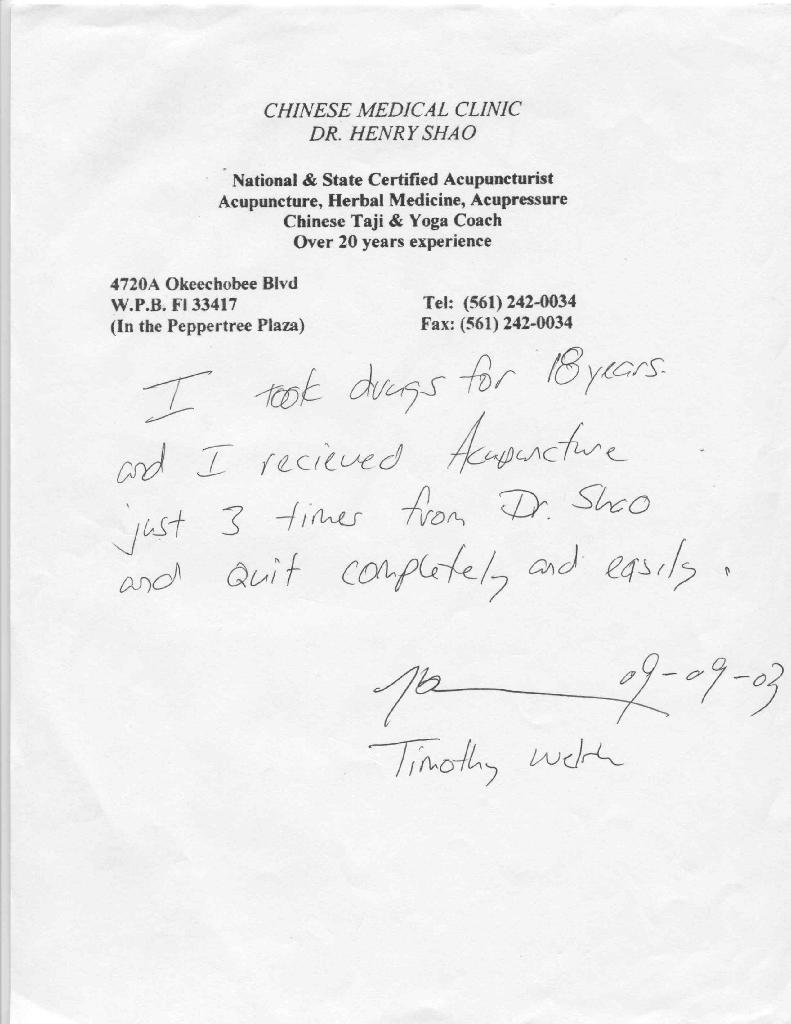 CHINESE MEDICAL CLINIC
DR. HENRY SHAO
National & State Certified Acupuncturist
Acupuncture, Herbal Medicine, Acupressure
Chinese Taji & Yoga Coach
Over 20 years experience
4720A Okeechobee Blvd
W.P.B. Fl 33417
(In the Peppertree Plaza)
Tel: (561) 242-0034
Fax: (561) 242-0034
I took drugs for 18 years.
and I recieved Acupuncture
just 3 times from Dr. Shao
and quit completely and easily.
09-09-03
Timothy